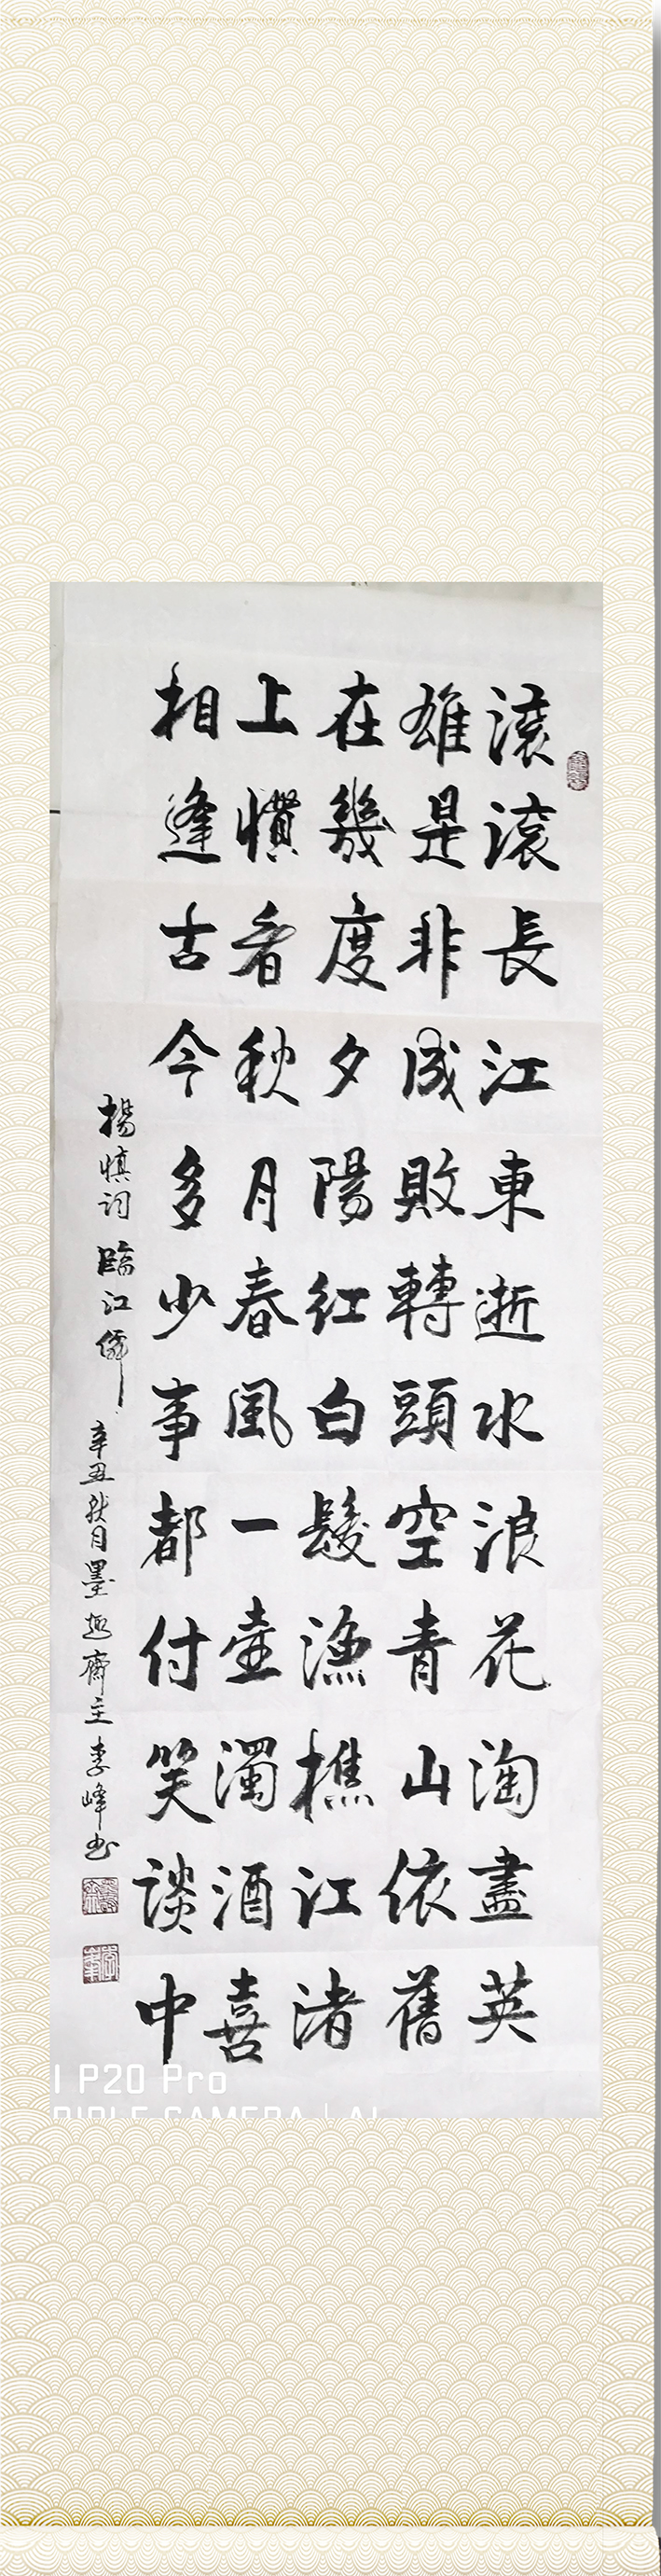 滚滚長江東逝水浪花淘盡英
雄是非成敗轉頭空青山依舊
在幾度夕陽紅白髮漁樵江渚
上慣看秋月春風一壺濁酒喜
相逢古今多少事都付笑談中
楊慎詞臨江仙
辛丑秋月墨趣齋主李峰书
I P20 Pro